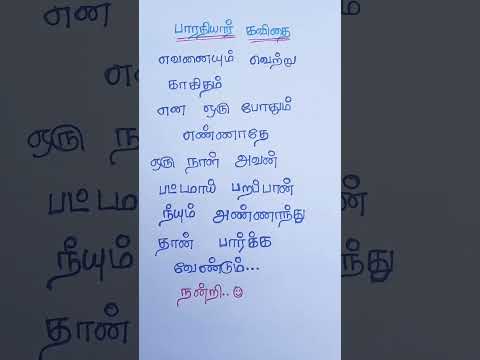 பாரதியார் கவிதை
எவனையும் வெற்று
காகிதம்
என ஒரு போதும்
எண்ணாதே
ஒரு நாள் அவன்
பட்டமாய் பறப்பான்
நீயும் அண்ணாந்து
தான் பார்க்க
வேண்டும்...
நன்றி..☺